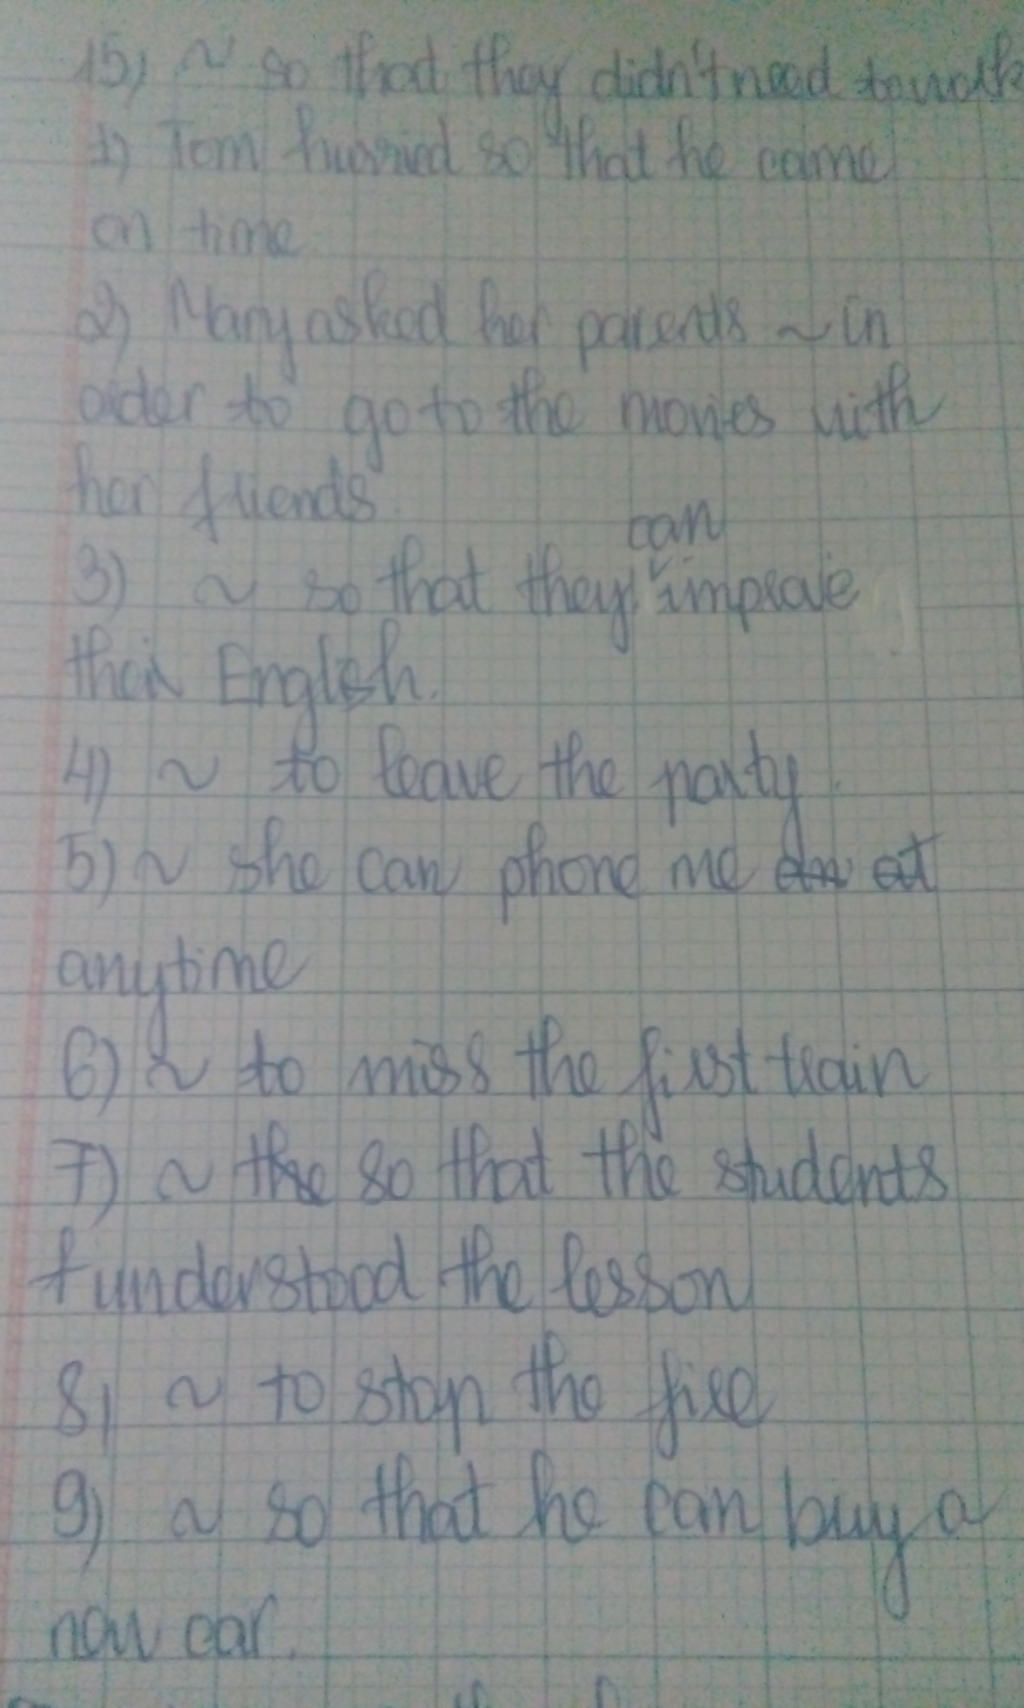 15) ~ so that they didn't need to walk
1) Tom hurried so that he came
on time
2) Mary asked her parents ~ in
order to go to the movies with
her friends
can
3) ~ so that they improve
their English.
4) ~ to leave the party.
5) ~ she can phone me at
anytime
6) ~ to miss the first train
7) ~ the so that the students
understood the lesson
8) ~ to stop the fire
9) ~ so that he can buy a
new car.